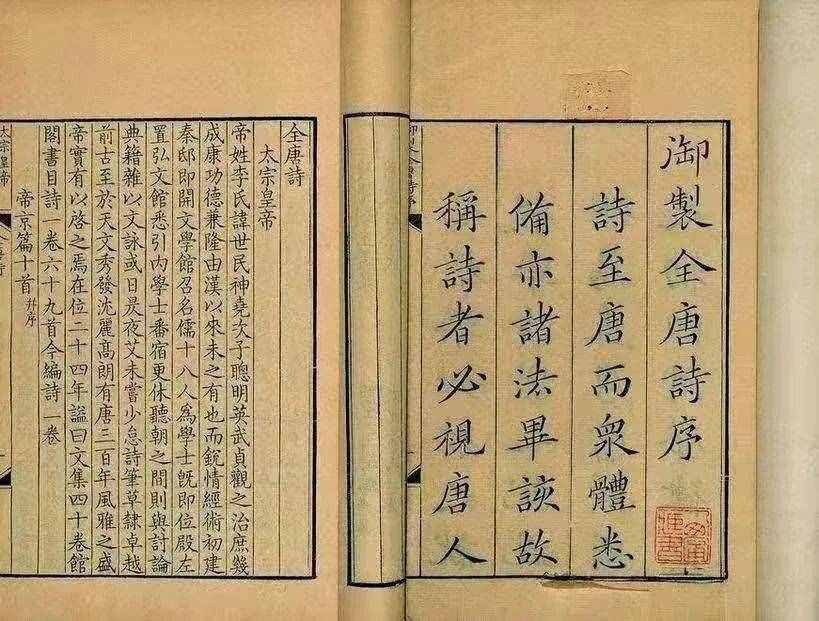 御製全唐詩序
詩至唐而衆體悉
備亦諸法畢該故
稱詩者必視唐人
全唐詩
太宗皇帝
帝姓李氏諱世民神堯次子聰明英武貞觀之治庶幾
成康功德兼隆由漢以來未之有也而銳情經術初建
秦邸即開文學館召名儒十八人爲學士旣即位殿左
置弘文館悉引內學士番宿更休聽朝之間則與討論
典籍雜以文詠或日昃夜艾未嘗少怠詩筆草隸卓越
前古至於天文秀發沈麗高朗有唐三百年風雅之盛
帝實有以啓之焉在位二十四年謚曰文集四十卷館
閣書目詩一卷六十九首今編詩一卷
帝京篇十首 幷序
太宗皇帝